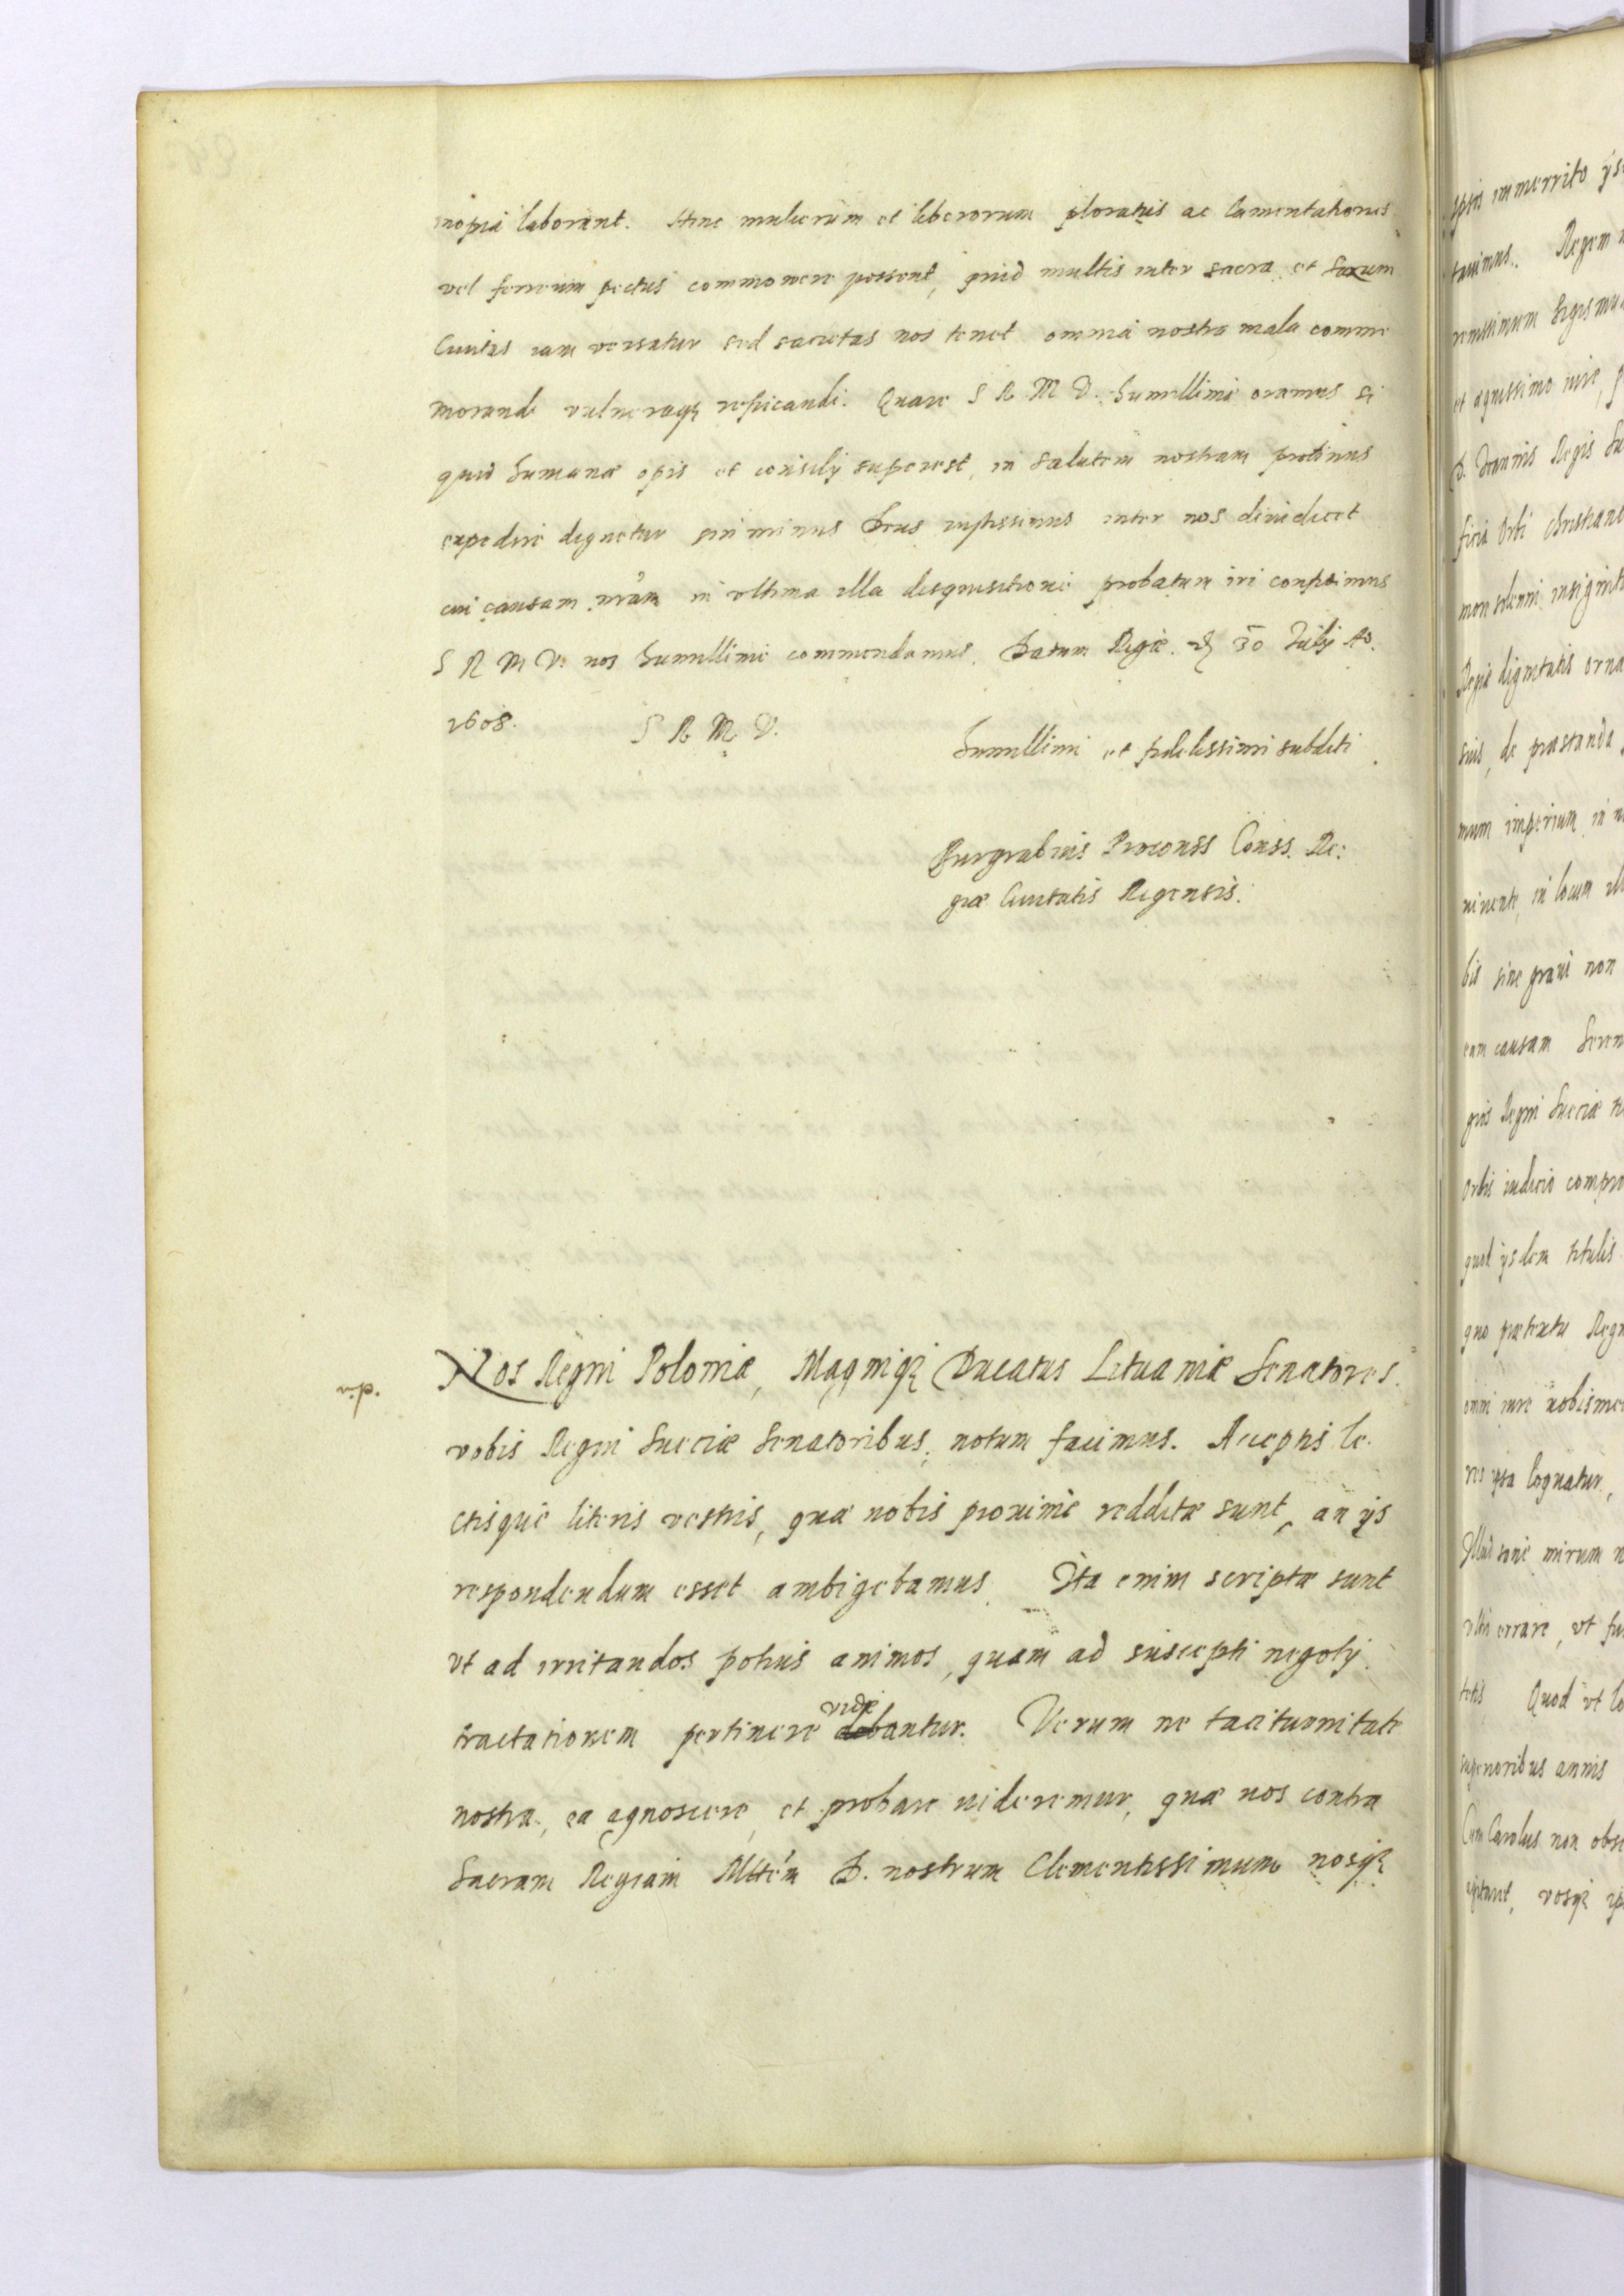 inopia laborent. Hinc mulierum et liberorum ploratus ac lamentationes
vel ferreum pectus commovere possent, quid multis inter sacra et saxum
Civitas iam versatur sed sacietas nos tenet omnia nostra mala comme
morandi vulneraq; refricandi. Quare S R M V. humillime oramus si
quid humanæ opis et consilij superest, in salutem nostram protinus
expedire dignetur sin minus Deus iustissimus inter nos diiudicet
cui causam nram in vltima illa disquisitione probatum iri confidimus
S R M V. nos humillime commendamus. Datum Rigæ. 30 Julij Ao.
1608. S R M V.
humillimi et fidelissimi subditi
Burgrabius Proconss Conss. Re:
giæ Civitatis Rigensis.
Nos Regni Poloniæ, Magniq; Ducatus Lituaniæ Senatores.
vobis Regni Sueciæ Senatoribus, notum facimus. Acceptis le
ctisque literis vestris, quæ nobis proxime redditæ sunt, an ijs
respondendum esset ambigebamus. Ita enim scriptæ sunt
vt ad irritandos potius animos, quam ad suscepti negotij
vide
tractationem pertinere debantur. Verum ne taciturnitate
nostra, ea agnoscere et probare uideremur, quæ nos contra
Sacram Regiam Mttem D. nostrum Clementissimum nosq;
ipsos immerrito
tauimus. Regem
renissimum Sigismu
et æquissimo iure,
D. Ioannis Regis Su
ficia Orbi Christiano
mon solenni insignit
Regiæ dignitatis orna
suis, de præstanda
mum imperium in
uiuente, in locum
bis sine graui non
eam causam Seren
gios Regni Sueciæ
Orbis iudicio compro
quod ijsdem titulis
quo prætextu Regn
omni iure nobisme
res ipsa loquatur,
Illud sane mirum
errare, vt
totis Quod vt
superioribus annis
Cum Carolus non obs
vosq;